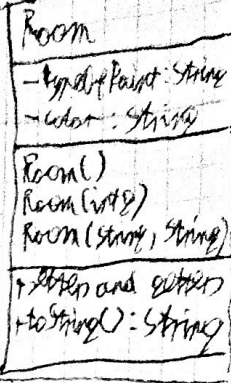 Room
- typeOfPaint: String
- color: String
Room()
Room(
Room(String, String)
+ setters and getters
+ toString(): String